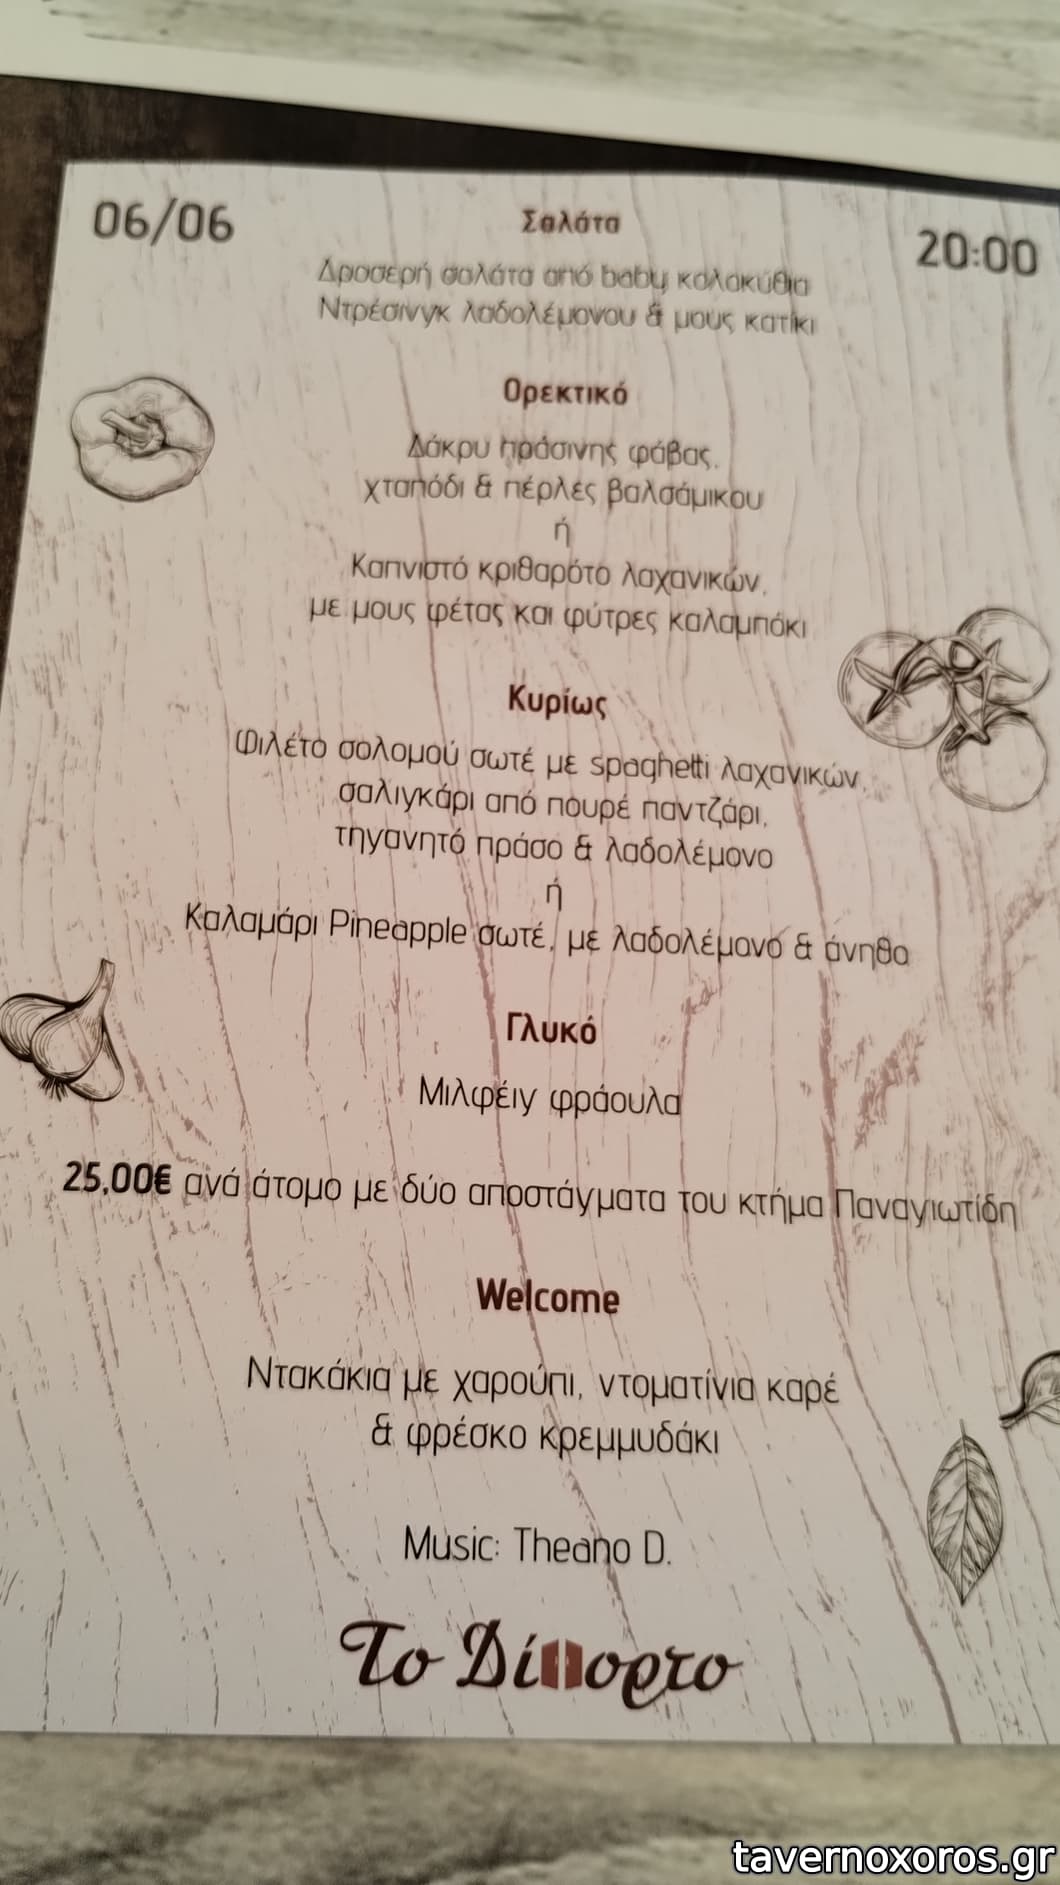 06/06
20:00
Σαλάτα
Δροσερή σαλάτα από baby κολοκύθια
Ντρέσινγκ λαδολέμονου & μους κατίκι
Ορεκτικό
Δάκρυ πράσινης φάβας,
χταπόδι & πέρλες βαλσάμικου
ή
Καπνιστό κριθαρότο λαχανικών,
με μους φέτας και φύτρες καλαμπόκι
Κυρίως
Φιλέτο σολομού σωτέ με spaghetti λαχανικών,
σαλιγκάρι από πουρέ παντζάρι,
τηγανητό πράσο & λαδολέμονο
ή
Καλαμάρι Pineapple σωτέ, με λαδολέμονο & άνηθο
Γλυκό
Μιλφέιγ φράουλα
25,00€ ανά άτομο με δύο αποστάγματα του κτήμα Παναγιωτίδη
Welcome
Ντακάκια με χαρούπι, ντοματίνια καρέ
& φρέσκο κρεμμυδάκι
Music: Theano D.
Το Δίπορτο
tavernoxoros.gr